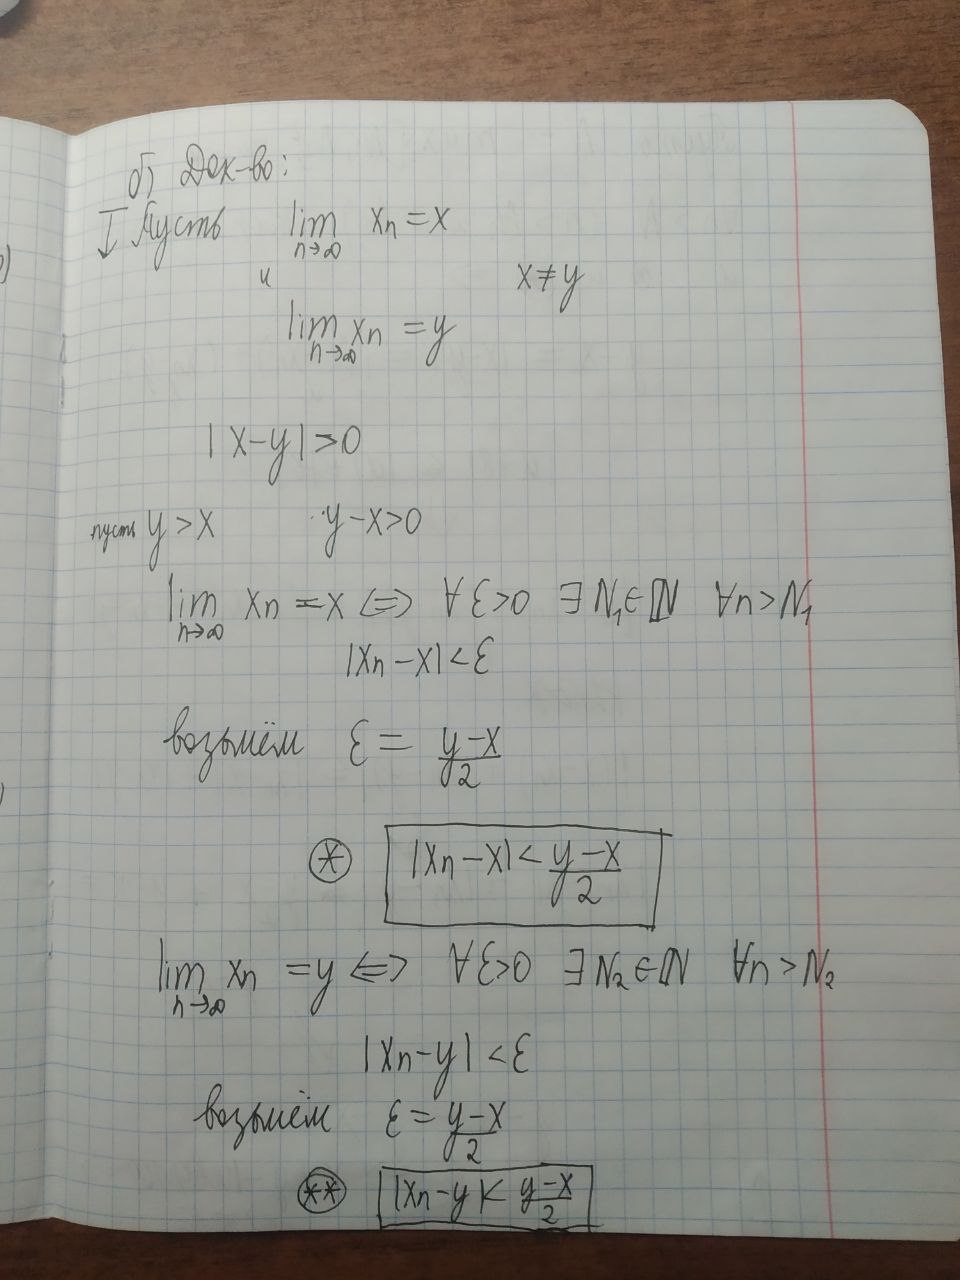 б) Док-во:
I Пусть lim xn = x
n→∞
и x ≠ y
lim xn = y
n→∞
|x-y|>0
пусть y > x y-x>0
lim xn = x ⇔ ∀ε>0 ∃N₁∈ℕ ∀n>N₁
n→∞
|xn-x|<ε
возьмём ε = (y-x)/2
(*) |xn-x| < (y-x)/2
lim xn = y ⇔ ∀ε>0 ∃N₂∈ℕ ∀n>N₂
n→∞
|xn-y|<ε
возьмём ε = (y-x)/2
(**) |xn-y|< (y-x)/2